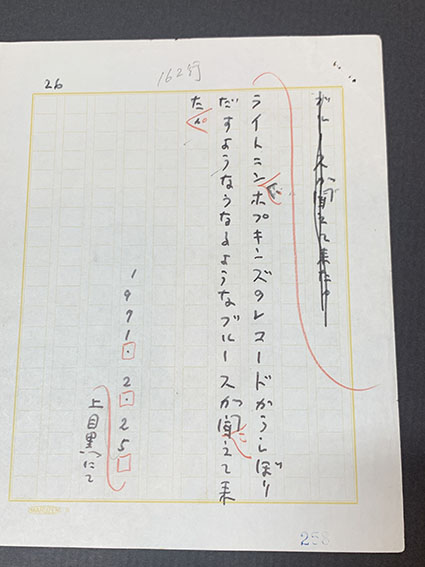 26
162行
ブルースが聞えて来た
ライトニンホプキンズのレコードからしぼり
だすようなうなるようなブルースが聞えて来
た。
1971.2.25
上目黒にて
258